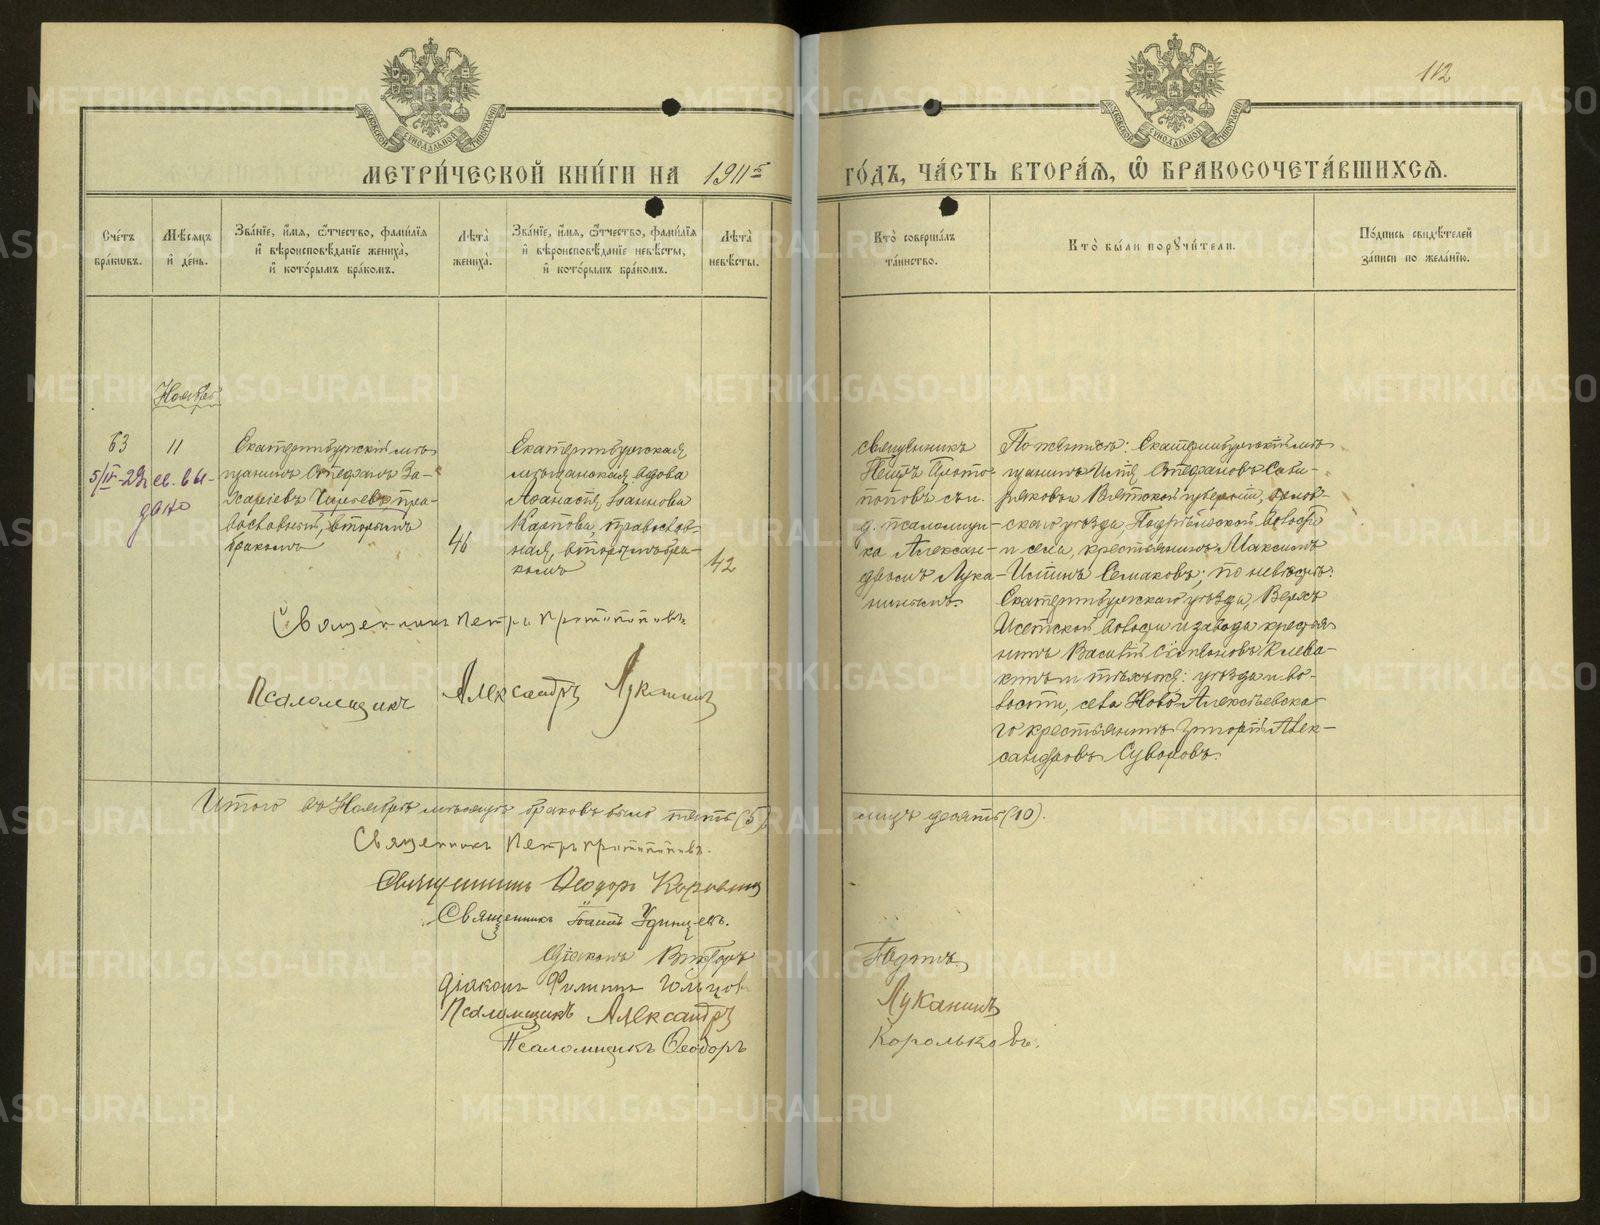 112
МЕТРИ́ЧЕСКОЙ КНИ́ГИ НА 1911й ГО́ДЪ, ЧА́СТЬ ВТОРА́Я, Ѡ҆ БРАКОСОЧЕТА́ВШИХСЯ.
Сче́тъ бра́ковъ.
Мѣ́сяцъ и҆ де́нь.
Зва́нїе, и҆́мя, ѻ҆́тчество, фами́лїя и҆ вѣроисповѣ́данїе жениха̀, и҆ кото́рымъ бра́комъ.
Лѣта̀ жениха̀.
Зва́нїе, и҆́мя, ѻ҆́тчество, фами́лїя и҆ вѣроисповѣ́данїе невѣ́сты, и҆ кото́рымъ бра́комъ.
Лѣта̀ невѣ́сты.
Кто̀ соверша́лъ та́инство.
Кто̀ бы́ли порꙋчи́тели.
По́дпись свидѣ́телей за́писи по жела́нїю.
Ноябрь
63
11
5/IV-29г св. вы-
дано
Екатеринбургскій мѣ-
щанинъ Стефанъ За-
харіевъ пра-
вославный, вторымъ
бракомъ
46
Екатеринбургская
мѣщанская вдова
Афанасія Іоаннова
Карпова, православ-
ная, вторымъ бра-
комъ
42
Священникъ
Петръ Прото-
поповъ съ и.
д. псаломщи-
ка Алексан-
дромъ Лука-
нинымъ.
По женихѣ: Екатеринбургскій мѣ-
щанинъ Стефановъ
Вятской губерніи,
скаго уѣзда, волости
и села, крестьянинъ Максимъ
Семаковъ; по невѣстѣ:
Екатеринбургскаго уѣзда, Верхъ
Исетской волости и завода крестья
нинъ Василій Клева-
кинъ и тѣхъ же: уѣзда и во-
лости, села Ново-Алексѣевска-
го крестьянинъ Григорій Алек-
сандровъ Суворовъ.
Священникъ Петръ Протопоповъ
Псаломщикъ Александръ Луканинъ
Итого въ Ноябрѣ мѣсяцѣ браковъ было пять (5) лицъ десять (10).
Священникъ Петръ Протопоповъ.
Священникъ Ѳеодоръ Коровинъ
Священникъ Іоаннъ Удинцевъ.
Діаконъ Викторъ
Діаконъ Филиппъ Гольцовъ
Псаломщикъ Александръ Луканинъ
Псаломщикъ Ѳеодоръ Корольковъ.